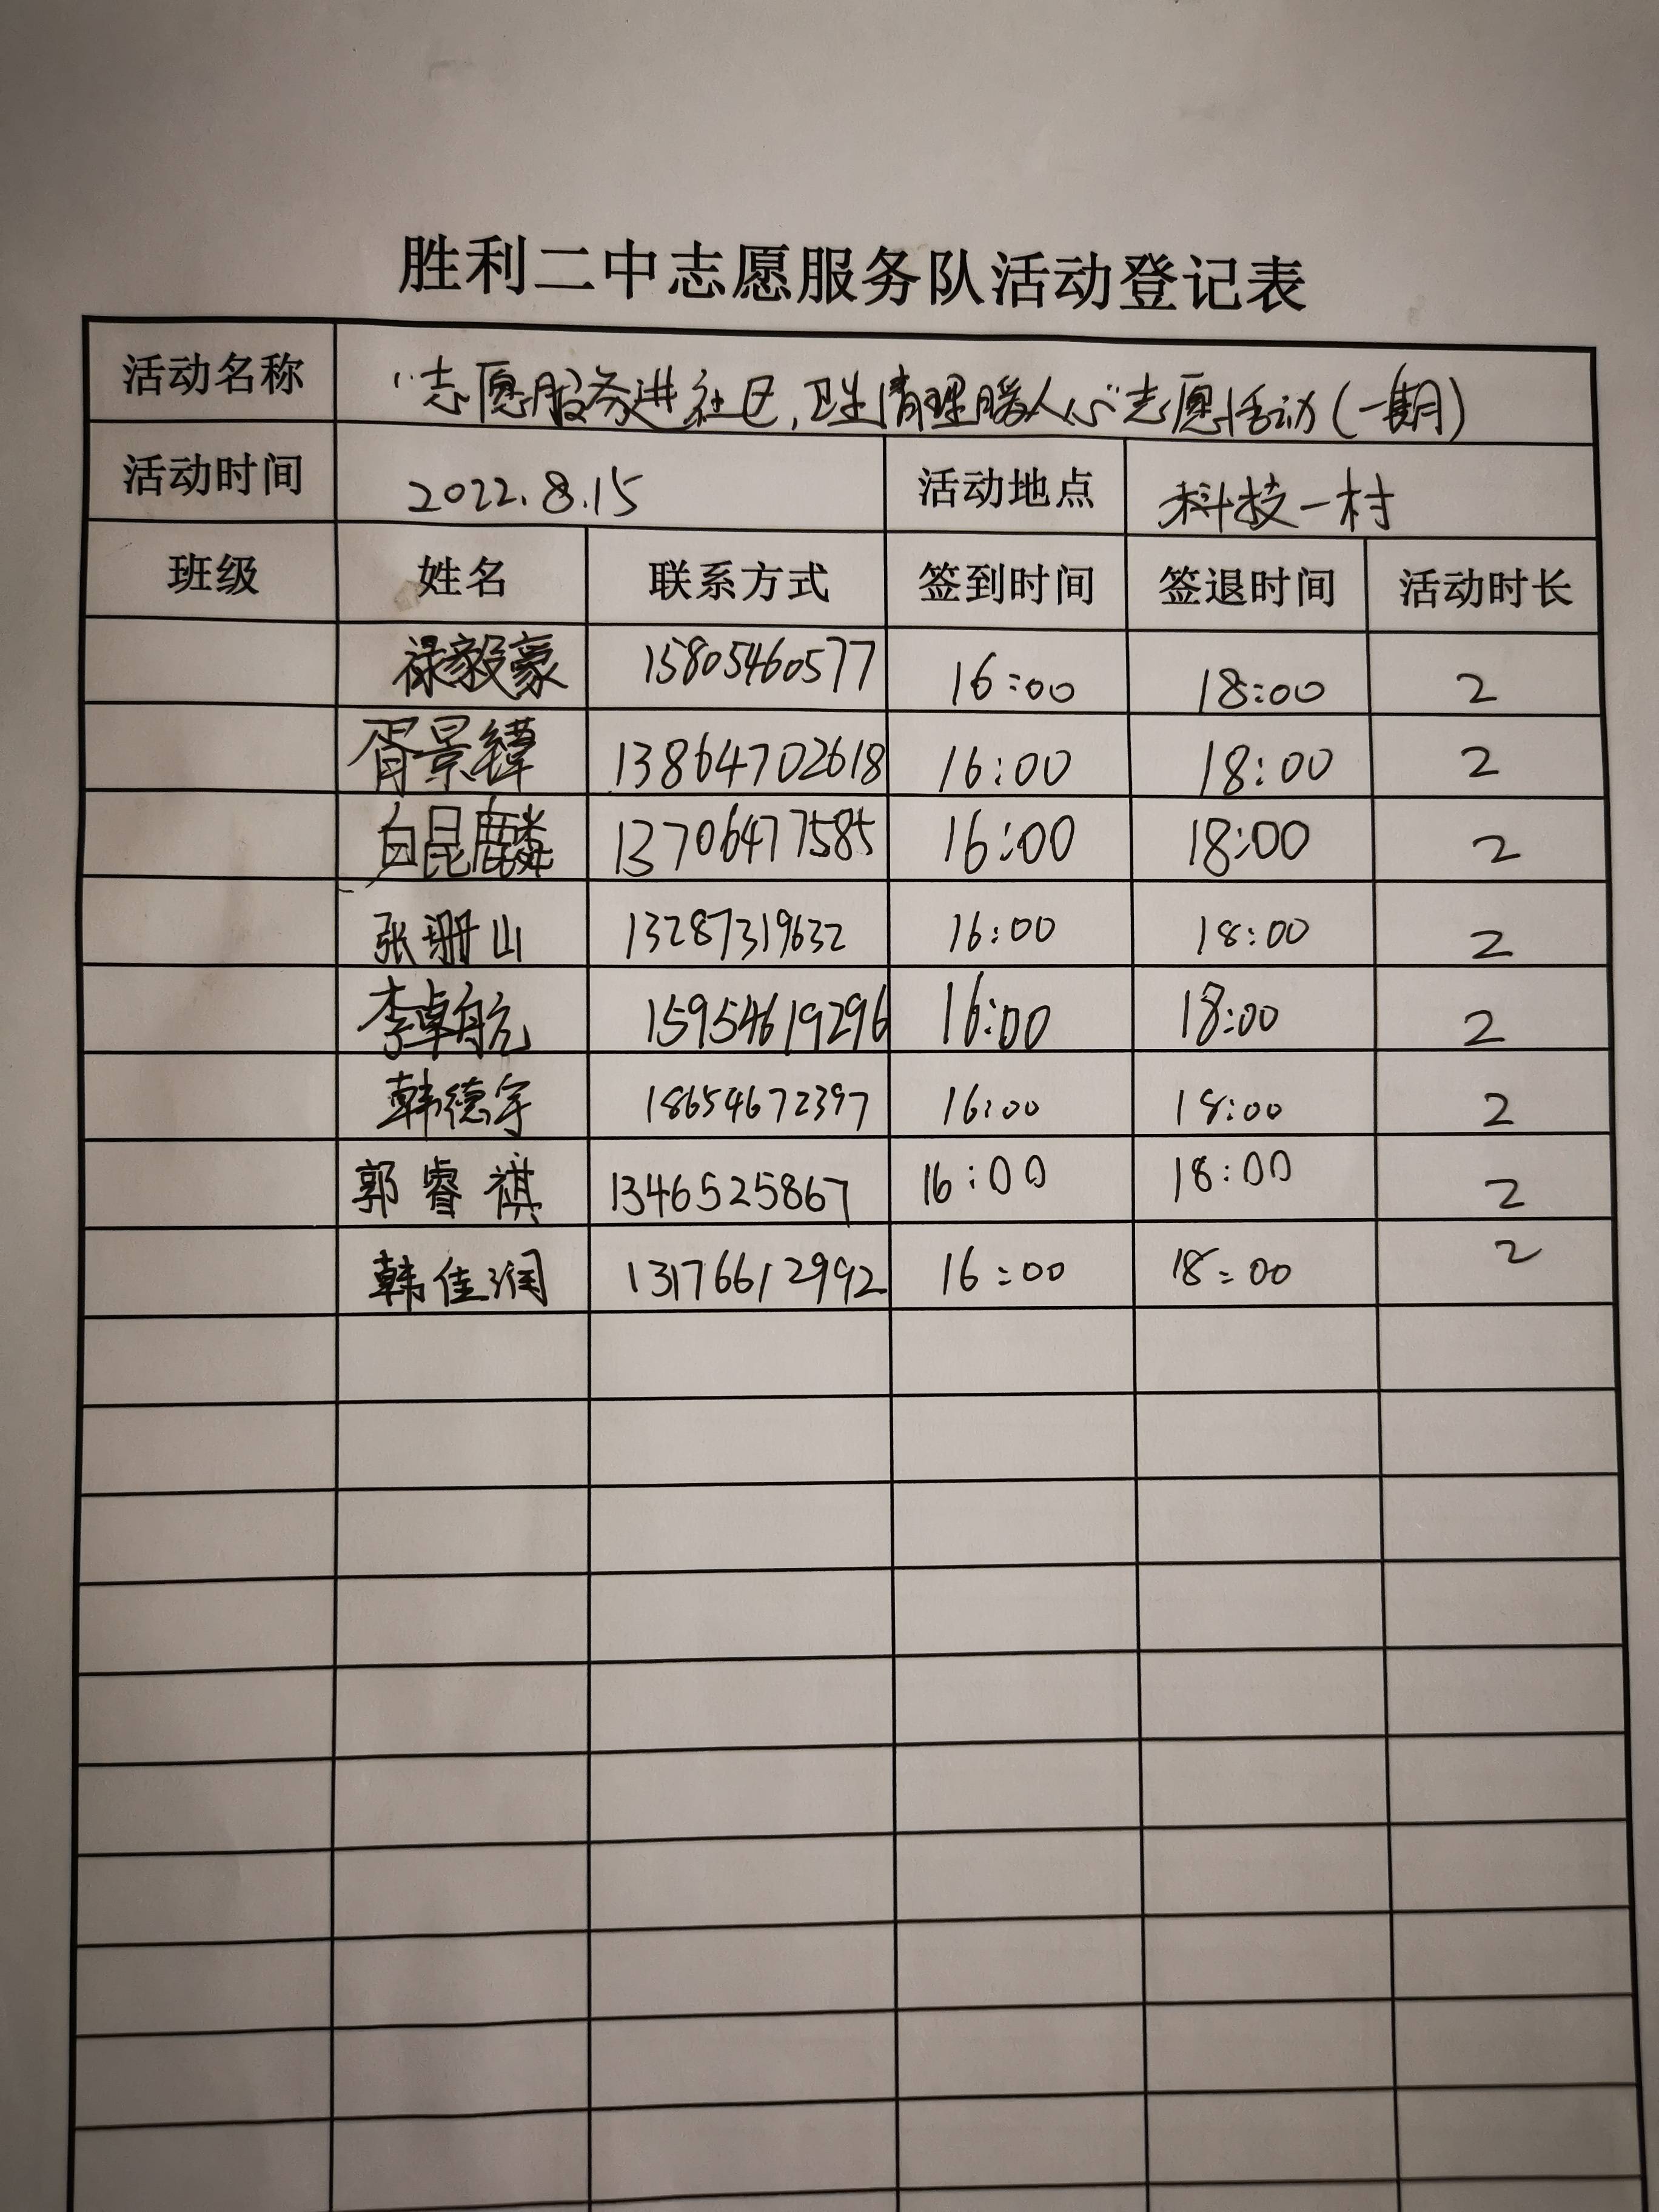 胜利二中志愿服务队活动登记表
活动名称 “志愿服务进社区,卫生清理暖人心”志愿活动(一期)
活动时间 2022.8.15 活动地点 科技一村
班级 姓名 联系方式 签到时间 签退时间 活动时长
禄毅豪 15805460577 16:00 18:00 2
胥景 13864702618 16:00 18:00 2
白昆麟 13706477585 16:00 18:00 2
张珊山 13287319632 16:00 18:00 2
李卓航 15954619296 16:00 18:00 2
韩德宇 18654672397 16:00 18:00 2
郭睿祺 1346525867 16:00 18:00 2
韩佳润 13176612992 16:00 18:00 2